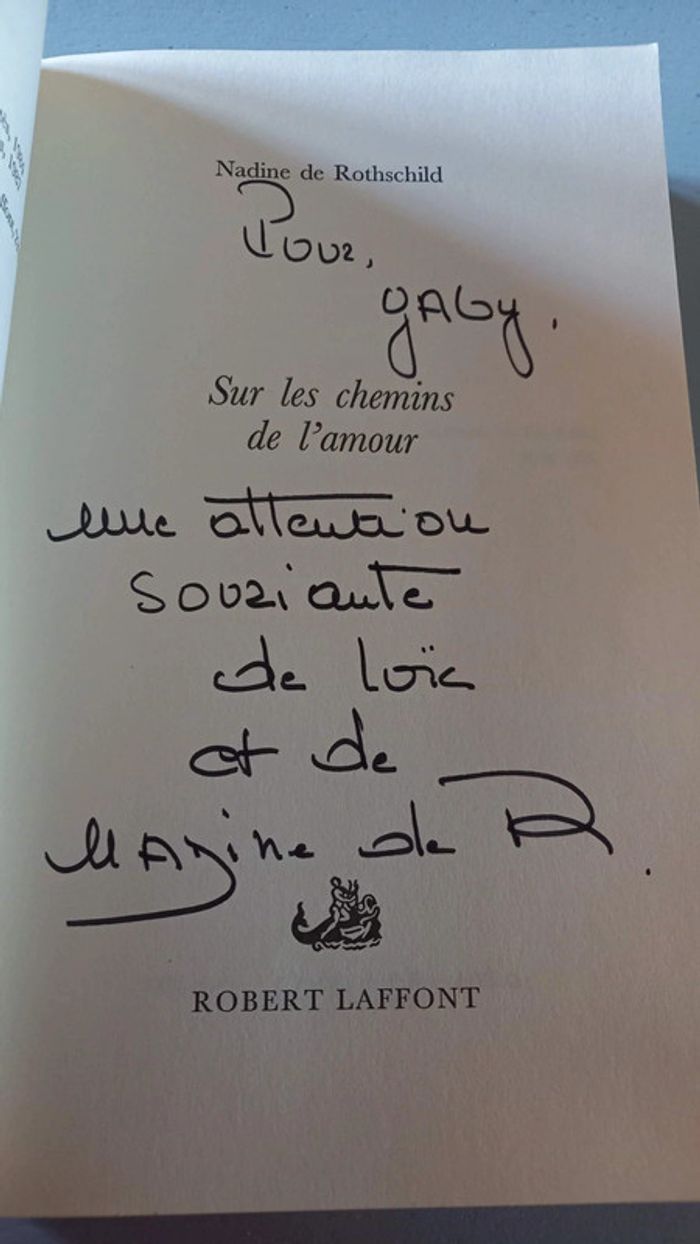 Nadine de Rothschild
Pour,
gaby.
Sur les chemins
de l'amour
une attention
souriante
de loïc
et de
Nadine de R.
ROBERT LAFFONT